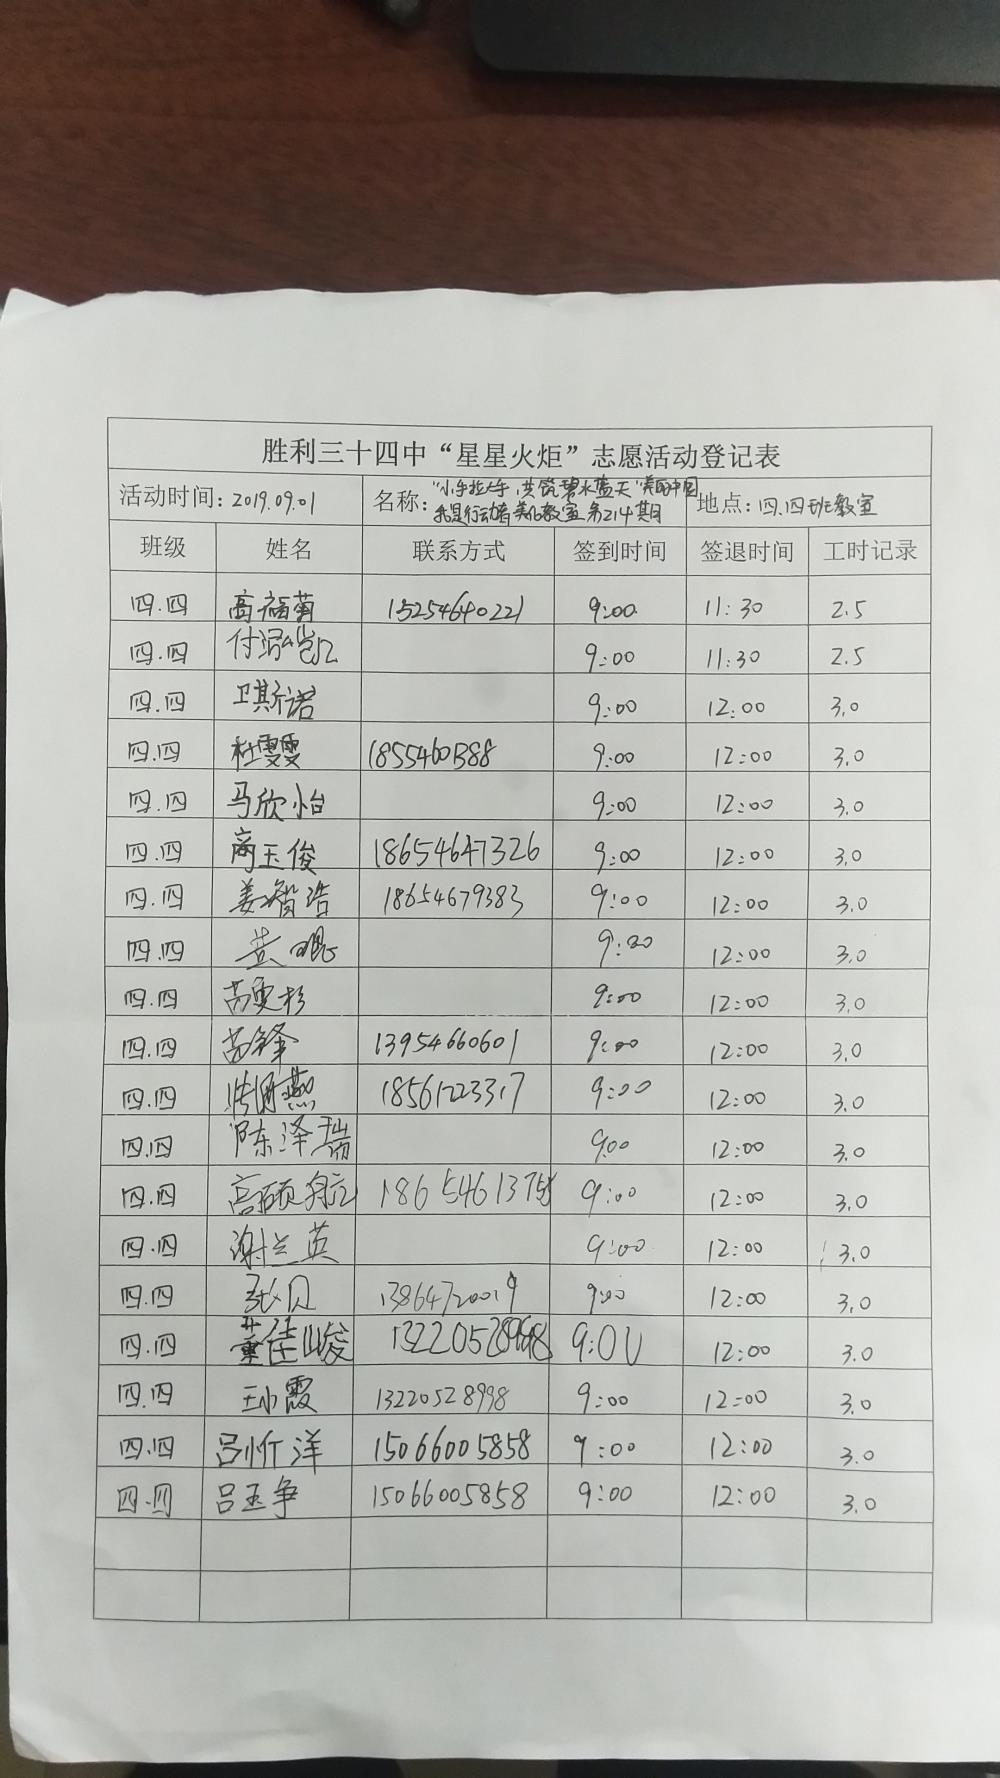 胜利三十四中“星星火炬”志愿活动登记表
活动时间：2019.09.01 名称：“小手拉大手，共筑碧水蓝天”美丽中国 我是行动者 美化教室 第214期 地点：四.四班教室
班级 姓名 联系方式 签到时间 签退时间 工时记录
四.四 高福菊 15254640221 9:00 11:30 2.5
四.四 付 9:00 11:30 2.5
四.四 卫斯诺 9:00 12:00 3.0
四.四 杜雯雯 9:00 12:00 3.0
四.四 马欣怡 9:00 12:00 3.0
四.四 商玉俊 18654647326 9:00 12:00 3.0
四.四 姜智浩 18654679383 9:00 12:00 3.0
四.四 9:00 12:00 3.0
四.四 苗雯杉 9:00 12:00 3.0
四.四 苗锋 13954660601 9:00 12:00 3.0
四.四 燕 18561223317 9:00 12:00 3.0
四.四 陈泽瑞 9:00 12:00 3.0
四.四 高硕航 9:00 12:00 3.0
四.四 谢兰英 9:00 12:00 3.0
四.四 13864720019 9:00 12:00 3.0
四.四 董佳峻 13220528998 9:00 12:00 3.0
四.四 王小霞 13220528998 9:00 12:00 3.0
四.四 吕忻洋 15066005858 9:00 12:00 3.0
四.四 吕玉争 15066005858 9:00 12:00 3.0